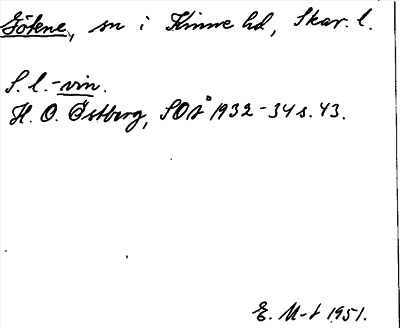 Götene, sn i Kinne hd, Skar. l.
S. l. -vin.
H. O. Östberg, SOÅ 1932-34 s. 43.
E. M-t 1951.